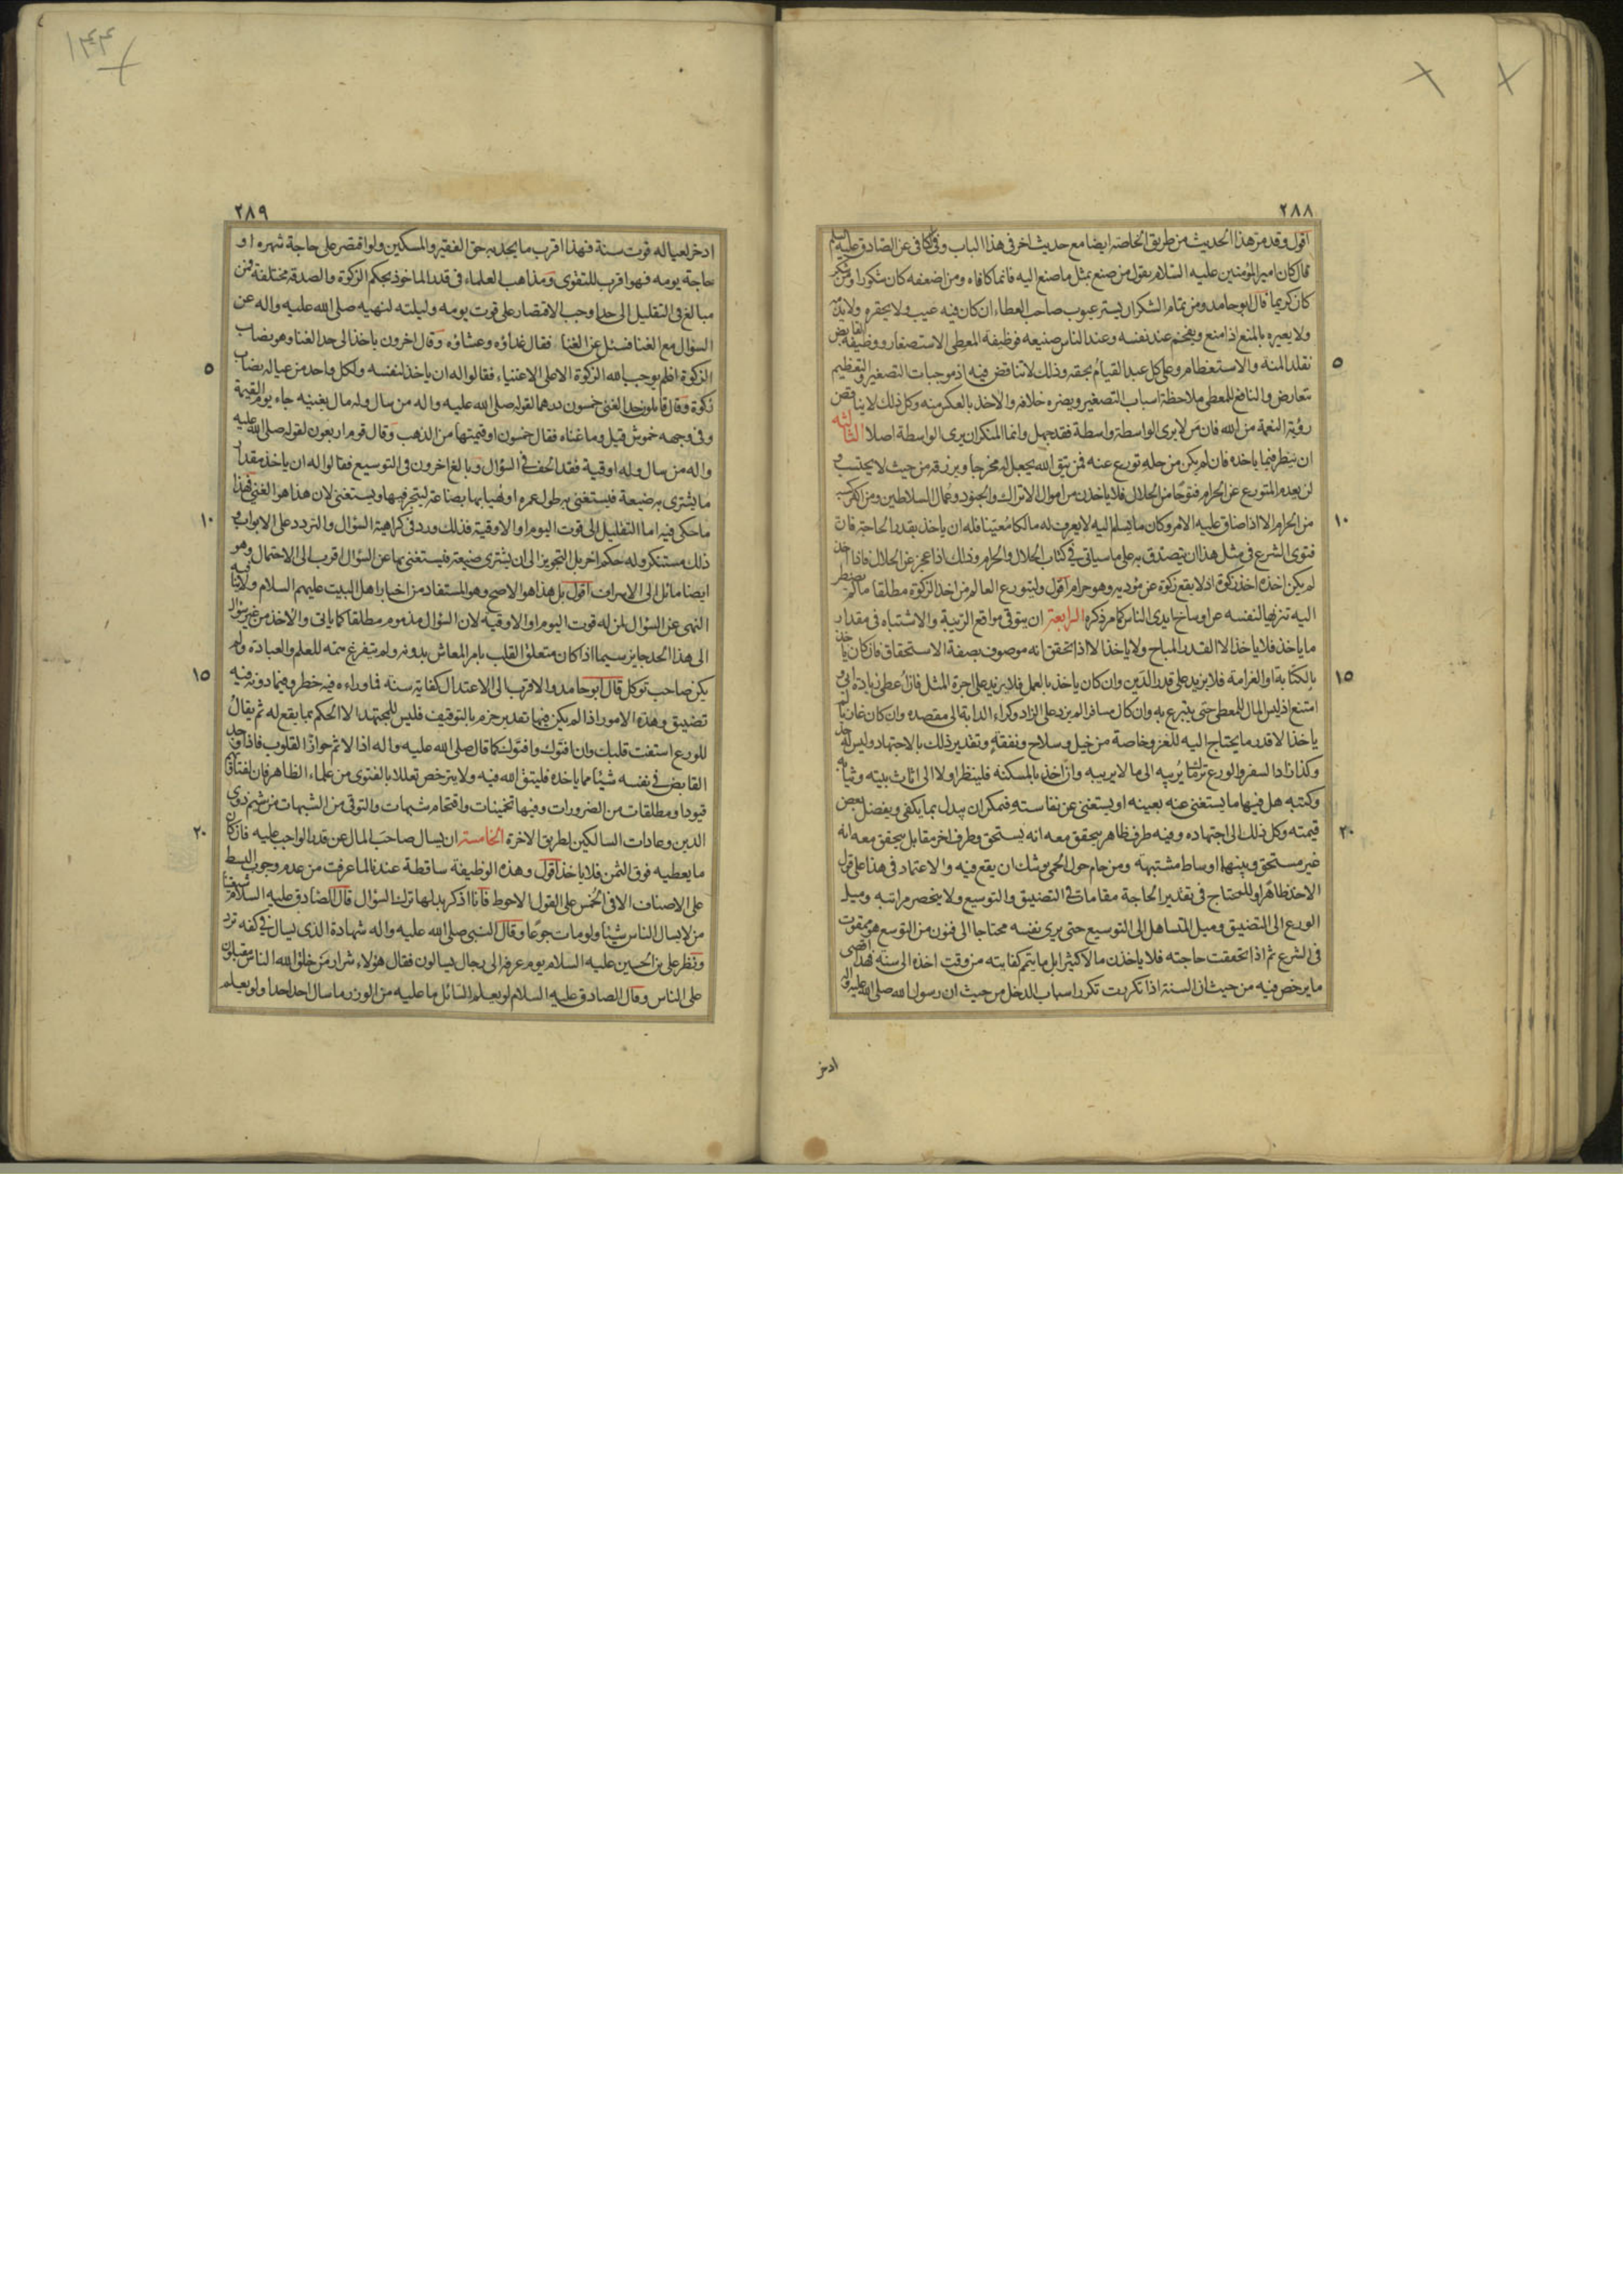 ٢٨٨
اقول وقد مر هذا الحديث من طريق الخاصة ايضا مع حديث اخر فى هذا الباب وفى الكافى عن الصادق عليه السلم
قال كان امير المؤمنين عليه السلام يقول من صنع بمثل ما صنع اليه فانما كافاه ومن اضعفه كان شكورا ومن شكر
كان كريما قال ابو حامد ومن تمام الشكر ان يستر عيوب صاحب العطاء ان كان فيه عيب ولا يحقره ولا يذمه
ولا يعيره بالمنع اذا منع ويفخم عند نفسه وعند الناس صنيعه فوظيفة المعطى الاستصغار ووظيفة القابض
تقلد المنة والاستعظام وعلى كل عبد القيام بحقه وذلك لا تناقض فيه اذ موجبات التصغير والتعظيم
تتعارض والنافع للمعطى ملاحظة اسباب التصغير ويضره خلافه والاخذ بالعكس منه وكل ذلك لا يناقض
رؤية النعمة من الله فان من لا يرى الواسطة واسطة فقد جهل وانما المنكر ان يرى الواسطة اصلا الثالثة
ان ينظر فيما ياخذه فان لم يكن من حله تورع عنه فمن يتق الله يجعل له مخرجا ويرزقه من حيث لا يحتسب و
لن يعدم المتورع عن الحرام فتوحا من الحلال فلا ياخذ من اموال الاتراك والجنود وعمال السلاطين ومن اكثر كسبه
من الحرام الا اذا ضاق عليه الامر وكان ما يسلم اليه لا يعرف له مالكا معينا فله ان ياخذ بقدر الحاجة فان
فتوى الشرع فى مثل هذا ان يتصدق به على ما سياتى فى كتاب الحلال والحرام وذلك اذا عجز عن الحلال فاذا اخذ
لم يكن اخذه اخذ زكوة اذ لا يقع زكوة عن مؤديه وهو حرام اقول وليتورع العالم من اخذ الزكوة مطلقا ما لم يضطر
اليه تنزيها لنفسه عن اوساخ ايدى الناس كما مر ذكره الرابعة ان يتوقى مواقع الريبة والاشتباه فى مقدار
ما ياخذ فلا ياخذ الا القدر المباح ولا ياخذ الا اذا تحقق انه موصوف بصفة الاستحقاق فان كان ياخذ
بالكتابة او الغرامة فلا يزيد على قدر الدين وان كان ياخذ بالعمل فلا يزيد على اجرة المثل فان اعطى زيادة ابى و
امتنع اذ ليس المال للمعطى حتى يتبرع به وان كان مسافرا لم يزد على الزاد وكراء الدابة الى مقصده وان كان غازيا لم
ياخذ الا قدر ما يحتاج اليه للغزو خاصة من خيل وسلاح ونفقة وتقدير ذلك بالاجتهاد وليس له حد
وكذا زاد السفر والورع ترك ما يريبه الى ما لا يريبه وان اخذ بالمسكنة فلينظر اولا الى اثاث بيته وثيابه
وكتبه هل فيها ما يستغنى عنه بعينه او يستغنى عن نفاسته فيمكن ان يبدل بما يكفى ويفضل بعض
قيمته وكل ذلك الى اجتهاده وفيه طرف ظاهر يتحقق معه انه يستحق وطرف اخر مقابل يتحقق معه انه
غير مستحق وبينهما اوساط مشتبهة ومن حام حول الحمى يوشك ان يقع فيه والاعتماد فى هذا على قول
الاخذ ظاهرا وللمحتاج فى تقدير الحاجة مقامات فى التضييق والتوسيع ولا ينحصر مراتبه وميل
الورع الى التضييق وميل المتساهل الى التوسيع حتى يرى نفسه محتاجا الى فنون من التوسع هو ممقوت
فى الشرع ثم اذا تحققت حاجته فلا ياخذن مالا كثيرا بل ما يتم كفايته من وقت اخذه الى سنة فهذا اقصى
ما يرخص فيه من حيث ان السنة اذا تكررت تكرر اسباب الدخل من حيث ان رسول الله صلى الله عليه واله
ادخر
٥
١٠
١٥
٢٠
٢٨٩
ادخر لعياله قوت سنة فهذا اقرب ما يحد به حق الفقير والمسكين ولو اقتصر على حاجة شهره او
حاجة يومه فهو اقرب للتقوى ومذاهب العلماء فى قدر الماخوذ بحكم الزكوة والصدقة مختلفة فمن
مبالغ فى التقليل الى حد اوجب الاقتصار على قوت يومه وليلته لنهيه صلى الله عليه واله عن
السؤال مع الغنا فسئل عن الغنا فقال غداؤه وعشاؤه وقال اخرون ياخذ الى حد الغنا وهو نصاب
الزكوة اذ لم يوجب الله الزكوة الا على الاغنياء فقالوا له ان ياخذ لنفسه ولكل واحد من عياله نصاب
زكوة وقال قائلون حد الغنى خمسون درهما لقوله صلى الله عليه واله من سال وله مال يغنيه جاء يوم القيمة
وفى وجهه خموش قيل وما غناه فقال خمسون او قيمتها من الذهب وقال قوم اربعون لقوله صلى الله عليه
واله من سال وله اوقية فقد الحف فى السؤال وبالغ اخرون فى التوسيع فقالوا له ان ياخذ مقدار
ما يشترى به ضيعة فيستغنى به طول عمره او يهيا بها بضاعة ليتجر فيها ويستغنى لان هذا هو الغنى فهذا
ما حكى فيه اما التقليل الى قوت اليوم او الاوقية فذلك ورد فى كراهية السؤال والتردد على الابواب و
ذلك مستنكر وله حكم اخر بل التجويز الى ان يشترى ضيعة فيستغنى بها عن السؤال اقرب الى الاحتمال وهو
ايضا مائل الى الاسراف اقول بل هذا هو الاصح وهو المستفاد من اخبار اهل البيت عليهم السلام ولا ينافيه
النهى عن السؤال لمن له قوت اليوم او الاوقية لان السؤال مذموم مطلقا كما ياتى والاخذ من غير سؤال
الى هذا الحد جايز سيما اذا كان متعلق القلب بامر المعاش بدونه ولم يتفرغ همته للعلم والعبادة ولم
يكن صاحب توكل قال ابو حامد والاقرب الى الاعتدال كفاية سنة فما وراءه فيه خطر وفيما دونه فيه
تضييق وهذه الامور اذا لم يكن فيها تقدير جزم بالتوقيف فليس للمجتهد الا الحكم بما يقع له ثم يقال
للورع استفت قلبك وان افتوك وافتوك كما قال صلى الله عليه واله اذا الاثم حواز القلوب فاذا وجد
القابض فى نفسه شيئا مما ياخذه فليتق الله فيه ولا يترخص تعللا بالفتوى من علماء الظاهر فان لفتاويهم
قيودا ومطلقات من الضرورات وفيها تخمينات واقتحام شبهات والتوقى من الشبهات من شيم ذوى
الدين وعادات السالكين لطريق الاخرة الخامسة ان يسال صاحب المال عن قدر الواجب عليه فان كان
ما يعطيه فوق الثمن فلا ياخذ اقول وهذه الوظيفة ساقطة عندنا لما عرفت من عدم وجوب البسط
على الاصناف الا فى الخمس على القول الاحوط فانا اذكر بدلها ترك السؤال قال الصادق عليه السلام شيعتنا
من لا يسال الناس شيئا ولو مات جوعا وقال النبى صلى الله عليه واله شهادة الذى يسال فى كفه ترد
ونظر على بن الحسين عليه السلام يوم عرفة الى رجال يسالون فقال هؤلاء شرار من خلق الله الناس مقبلون
على الناس وقال الصادق عليه السلام لو يعلم السائل ما عليه من الوزر ما سال احد احدا ولو يعلم
٥
١٠
١٥
٢٠
١٤٤